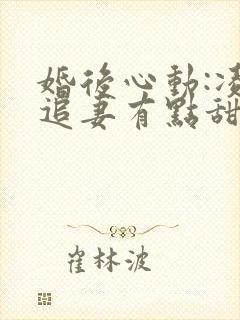 婚後心動:凌
追妻有點甜
崔林波